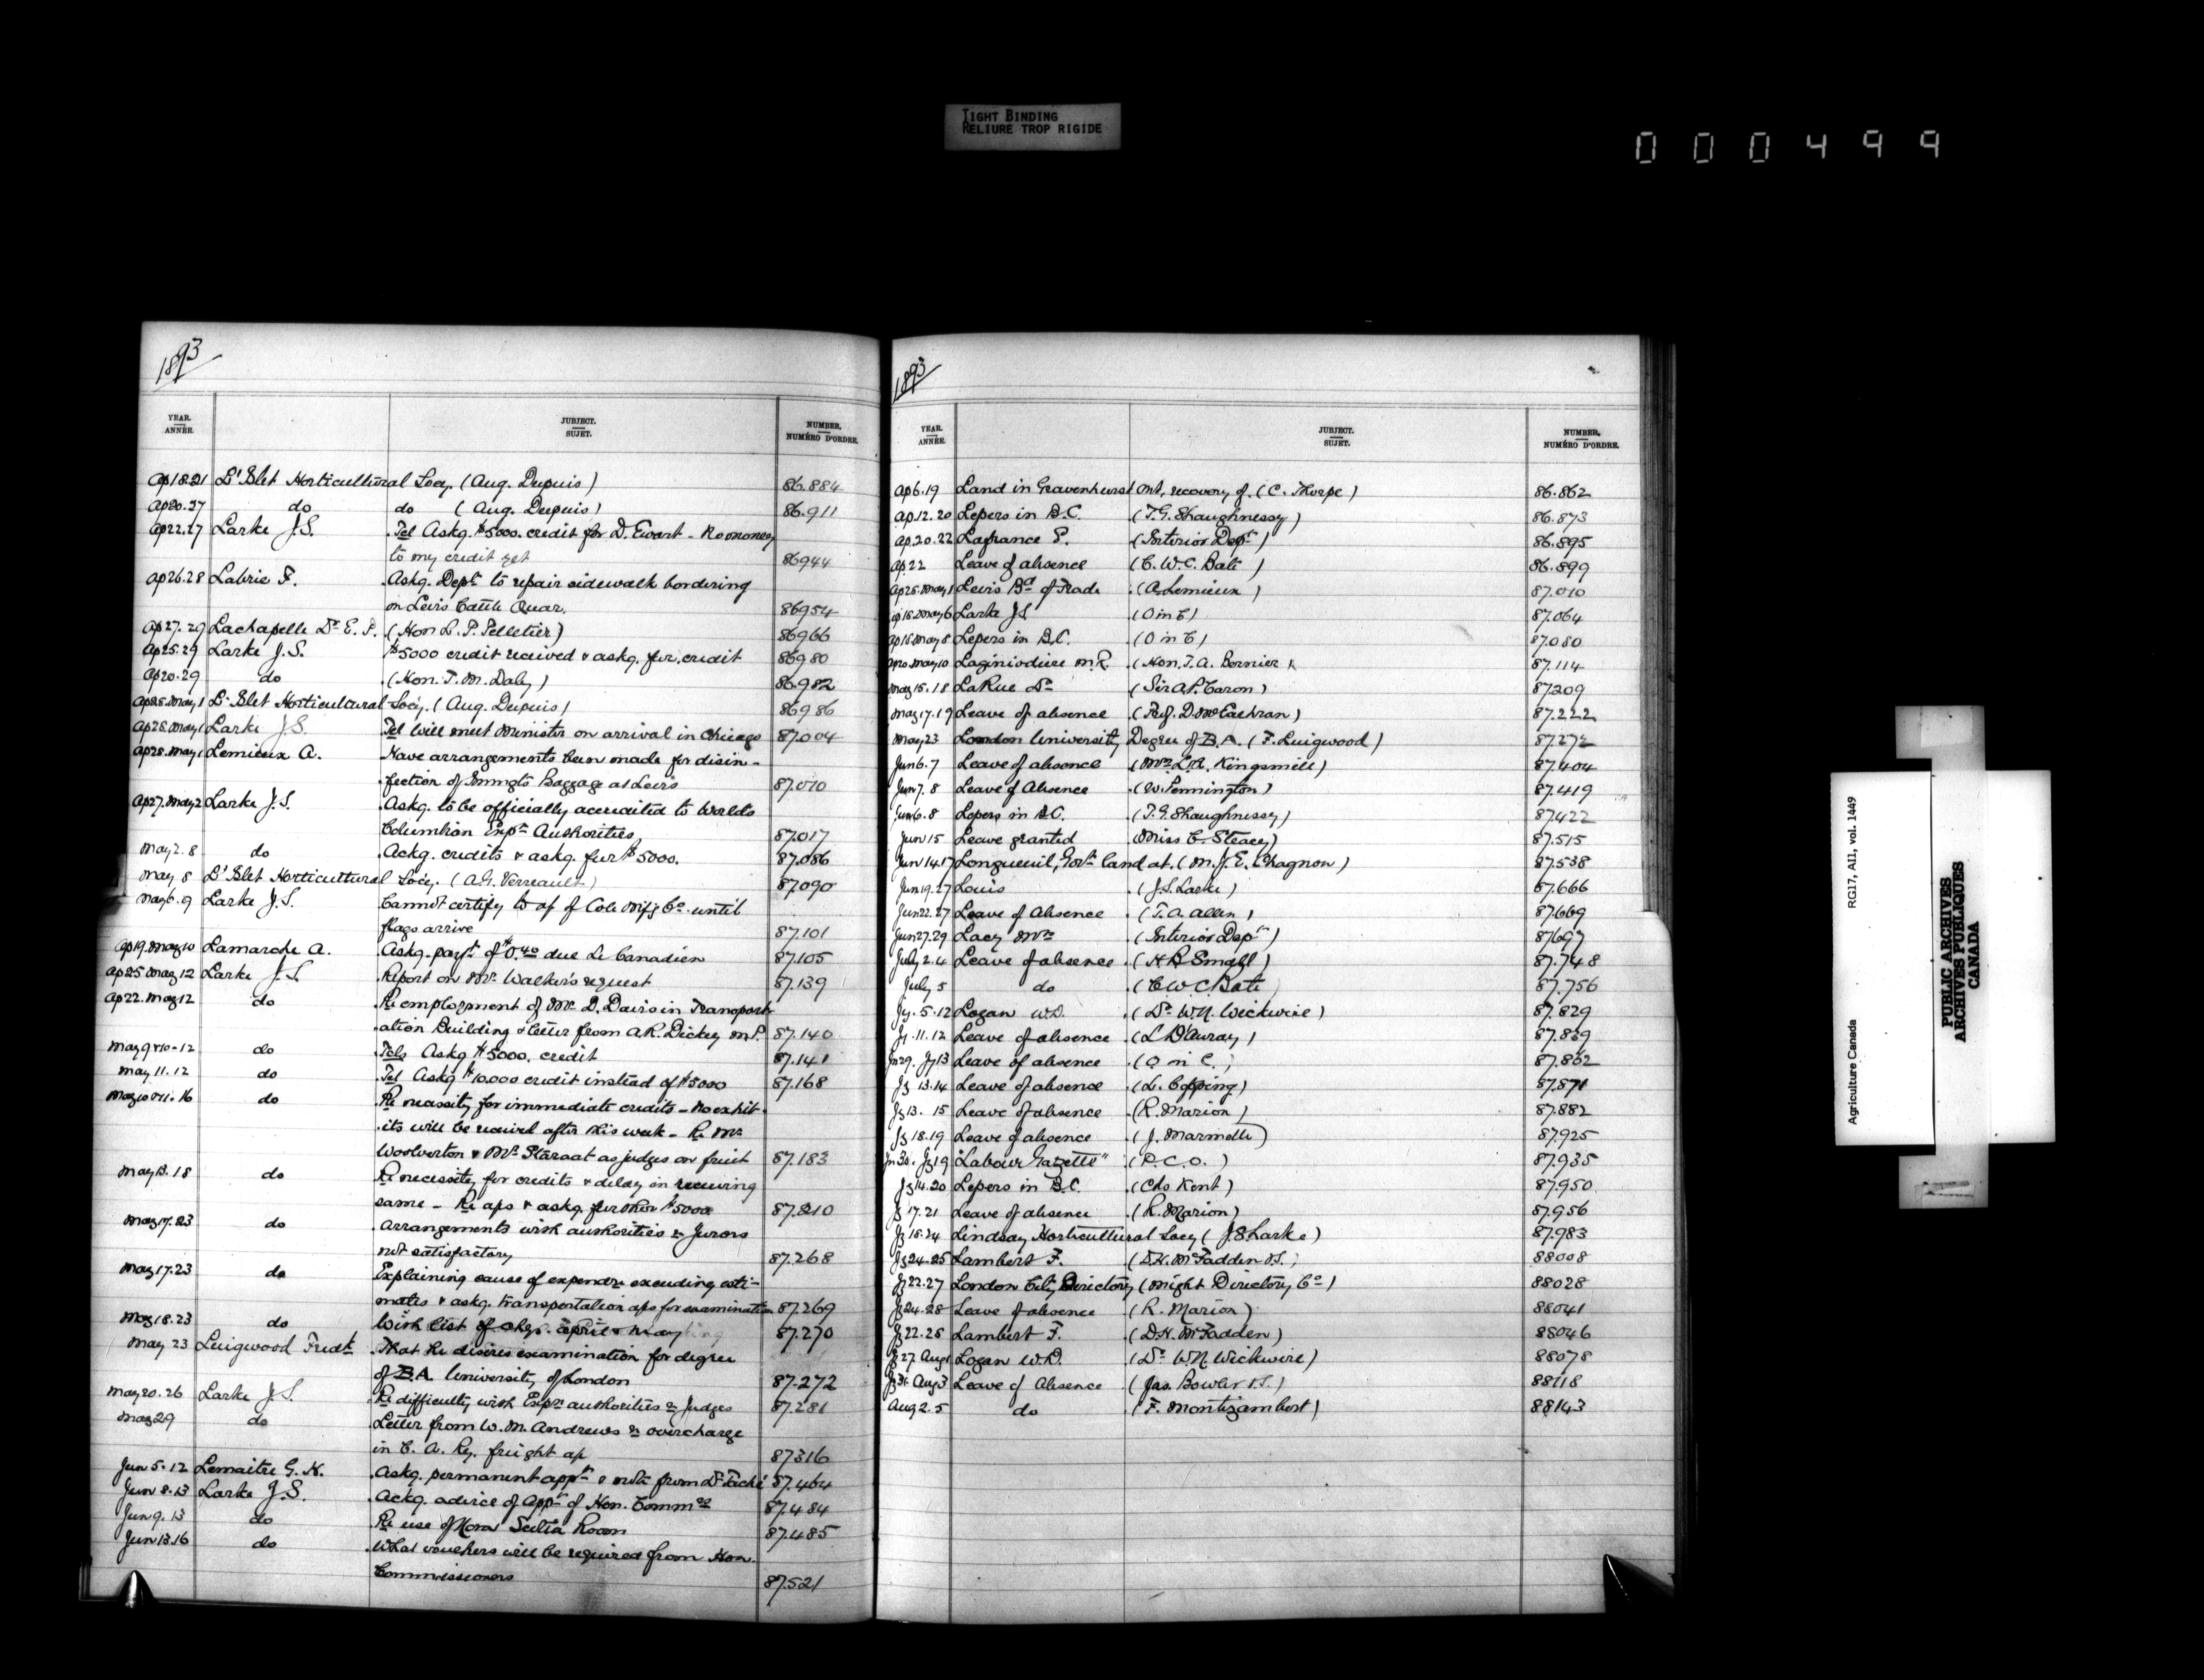 TIGHT BINDING
RELIURE TROP RIGIDE
000499
1893
YEAR. ANNÉE. SUBJECT. SUJET. NUMBER. NUMÉRO D'ORDRE.
Ap18.21 L'Islet Horticultural Socy. (Aug. Dupuis) 86.884
Ap20.27 do do (Aug. Dupuis) 86.911
Ap22.27 Larke J.S. Tel Askg. $5000. credit for D. Ewart - No money
to my credit yet 86944
Ap26.28 Labrie F. Askg. Dept to repair sidewalk bordering
on Levis Cattle Quar. 86954
Ap27.29 Lachapelle Dr E. P. (Hon L. P. Pelletier) 86966
Ap25.29 Larke J.S. $5000 credit received & askg. fur. credit 86980
Ap20.29 do (Hon. T. M. Daly) 86.982
Ap28.May1 L'Islet Horticultural Socy. (Aug. Dupuis) 86986
Ap28.May1 Larke J.S. Tel Will meet Minister on arrival in Chicago 87.004
Ap28.May1 Lemieux A. Have arrangements been made for disin-
fection of Immgts Baggage at Levis 87.010
Ap27.May2 Larke J.S. Askg. to be officially accredited to Worlds
Columbian Expn Authorities 87.017
May2.8 do Ackg. credits & askg. fur $5000. 87.086
May 8 L'Islet Horticultural Socy. (A.G. Verreault) 87.090
May6.9 Larke J.S. Cannot certify to ap of Cole Mfg Co. until
flags arrive 87.101
Ap19.May10 Lamarche A. Askg. payt of $0.40 due Le Canadien 87.105
Ap25 May12 Larke J.S. Report on Mr. Walker's request 87.139
Ap22.May12 do Re employment of Mr D. Davis in Transport-
ation Building & letter from A.R. Dickey M.P. 87.140
May9&10-12 do Tels Askg $5000. credit 87.141
May 11.12 do Tel Askg $10.000 credit instead of $5000 87.168
May10&11.16 do Re necessity for immediate credits - No exhib-
its will be received after this week - Re Mr
Woolverton & Mr. Staraat as judges on fruit 87.183
May13.18 do Re necessity for credits & delay in receiving
same - Re aps & askg. further $5000 87.210
May17.23 do Arrangements with authorities re Jurors
not satisfactory 87.268
May17.23 do Explaining cause of expendre exceeding esti-
mates & askg. transportation aps for examination 87.269
May18.23 do With list of chqs. April & May 87.270
May 23 Luigwood Fredk That he desires examination for degree
of B.A. University of London 87.272
May20.26 Larke J.S. Re difficulty with Expn authorities re Judges 87.281
May29 do Letter from W. M. Andrews re overcharge
in C. A. Ry. freight ap 87316
Jun 5.12 Lemaitre G. N. Askg. permanent appt & note from Dr Taché 87.464
Jun 8.13 Larke J.S. Ackg. advice of appt of Hon. Commrs 87.484
Jun 9.13 do Re use of Nova Scotia Room 87.485
Jun13.16 do What vouchers will be required from Hon.
Commissioners 87.521
1893
YEAR. ANNÉE. SUBJECT. SUJET. NUMBER, NUMÉRO D'ORDRE.
Ap6.19 Land in Gravenhurst Ont, recovery of (C. Thorpe) 86.862
Ap.12.20 Lepers in B.C. (T.G. Shaughnessy) 86.873
Ap.20.22 Lafrance P. (Interior Dept) 86.895
Ap.22 Leave of absence (C. W. C. Bate) 86.899
Ap28.May1 Levis Bd of Trade (A. Lemieux) 87.010
Ap18.May6 Larke J.S (O in C) 87.064
Ap18.May8 Lepers in B.C. (O in C) 87.080
Ap20.May10 Lagimodiere M.R. (Hon. T. A. Bernier) 87.114
May15.18 LaRue Dr (Sir A.P. Caron) 87.209
May17.19 Leave of absence (Prof. D. McEachran) 87.222
May23 London University Degree of B.A. (F. Luigwood) 87.272
Jun6.7 Leave of absence (Mrs L.A. Kingsmill) 87.404
Jun7.8 Leave of Absence (W. Pennington) 87.419
Jun6.8 Lepers in B.C. (T.G. Shaughnessy) 87.422
Jun15 Leave granted (Miss C. Steacy) 87.515
Jun 14.17 Longueuil, Govt land at. (M.J.E. Chagnon) 87.538
Jun19.27 Louis (J.S. Larke) 87.666
Jun22.27 Leave of Absence (T.A. Allen) 87.669
Jun27.29 Lacy Mrs (Interior Dept) 87697
July 2.4 Leave of absence (H.B. Small) 87.748
July 5 do (C.W.C. Bate) 87.756
Jy.5.12 Logan W.D. (Dr W.N. Wickwire) 87.829
Jy.11.12 Leave of absence (L D'Auray) 87.839
Jn29. Jy13 Leave of absence (O in C.) 87.862
Jy 13.14 Leave of absence (L. Copping) 87.871
Jy13. 15 Leave of absence (R. Marion) 87.882
Jy 18.19 Leave of absence (J. Marmette) 87.925
Jn30. Jy19 "Labour Gazette" (P.C.O.) 87.935
Jy14.20 Lepers in B.C. (Chs Kent) 87.950
Jy 17.21 Leave of absence (R. Marion) 87.956
Jy 18.24 Lindsay Horticultural Socy (J.S. Larke) 87.983
Jy24.25 Lambert F. (D.H. McFadden V.S.) 88008
Jy22.27 London City Directory (Might Directory Co) 88028
Jy24.28 Leave of absence (R. Marion) 88041
Jy22.28 Lambert F. (D.H. McFadden) 88046
Jy27 Aug1 Logan W.D. (Dr W.N. Wickwire) 88078
Jy31. Aug3 Leave of Absence (Jas. Bowler V.S.) 88118
Aug2.5 do (F. Montizambert) 88143
Agriculture Canada RG17, AII, vol. 1449
PUBLIC ARCHIVES
ARCHIVES PUBLIQUES
CANADA